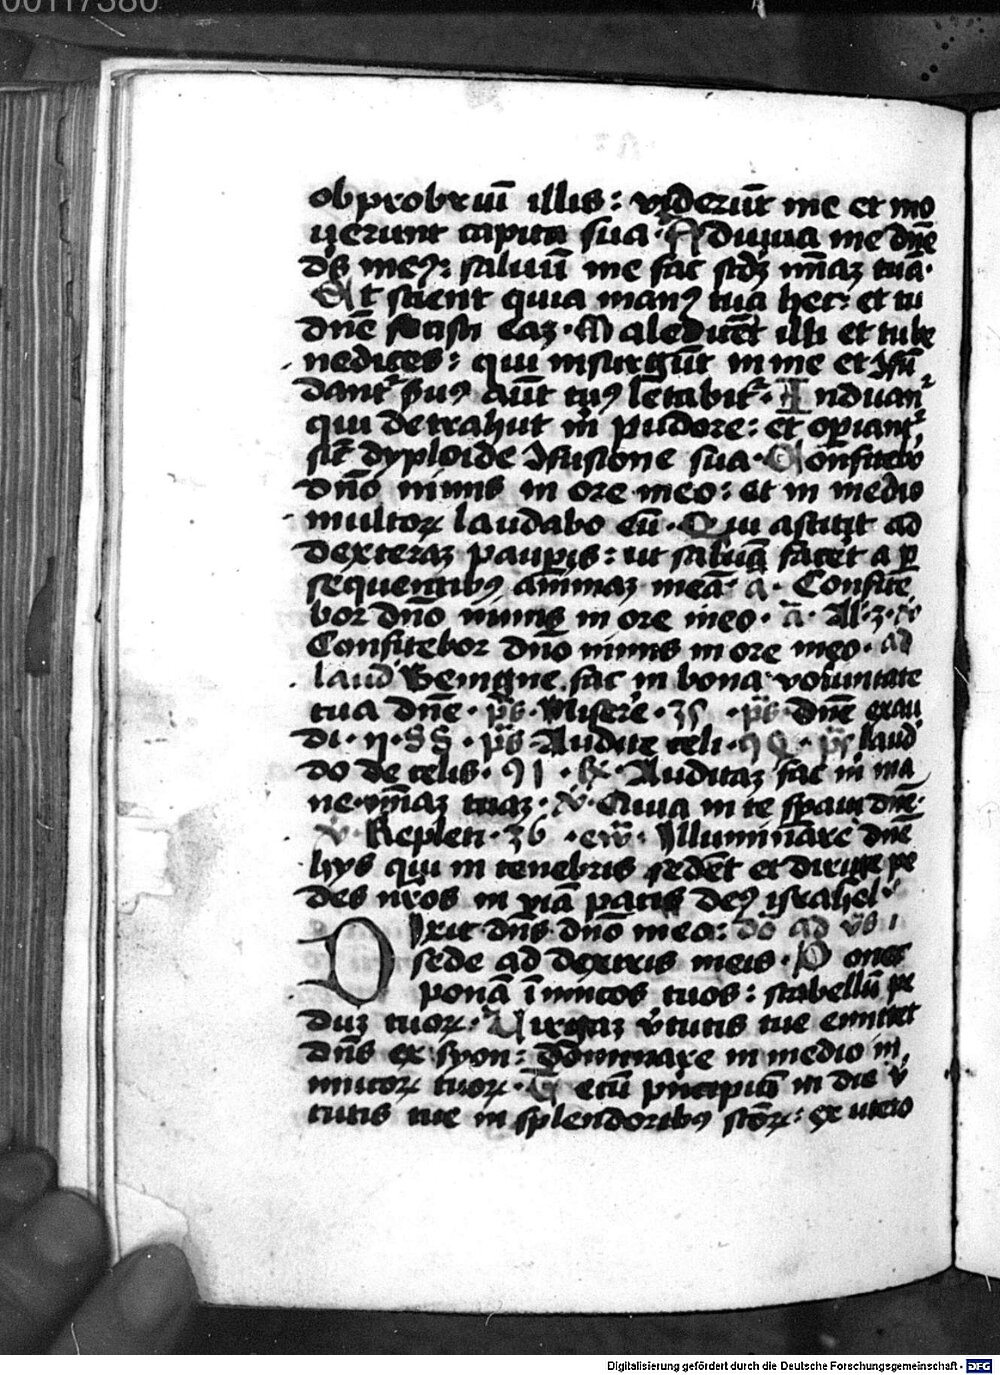 00117380
obprobriū illis : viderūt me et mo
uerunt capita sua · Adiuua me dn̄e
ds̄ meꝰ : saluū me fac scdꝫ mīaꝫ tuā ·
Et scient quia manꝰ tua hec : et tu
dn̄e fecisti eaꝫ · Maledicēt illi et tu be
nedices : qui insurgūt in me et ꝯfū
dant᷑ suꝰ aūt tuꝰ letabit᷑ · Induan᷑
qui detrahūt m̄ pudore : et operiant᷑
sic̄ dyploide ꝯfusione sua · Confitebor
dn̄o nimis in ore meo : et in medio
multoꝝ laudabo eū · Qui astitit ad
dexteraꝫ paupis : ut saluā faceret a ꝑ
sequentibꝰ animaꝫ meā a · Confite
bor dn̄o nimis in ore meo · a ·
Confitebor dn̄o nimis in ore meo · ad
laud Benigne fac in bona voluntate
tua dn̄e · ps̄ · Misere · ps̄ · dn̄e exau
di · ps̄ · Audite celi · ps̄ laud
do de celis · Auditaꝫ fac in ma
ne mīaꝫ tuaꝫ · v̄ · Quia in te spaui dn̄e ·
v̄ · Repleti · 36 · ew̄ · Illuminare dn̄e
hys qui in tenebris sedēt et dirige pe
des nr̄os in viā pacis deꝰ israhel
Dixit dn̄s dn̄o meo :
sede ad dextris meis · Donec
ponā īimicos tuos : scabellū pe
duꝫ tuoꝝ · Uirgaꝫ v̄tutis tue emittet
dn̄s ex syon : dominare in medio in
imicoꝝ tuoꝝ · Tecū principiū in die v̄
tutis tue in splendoribꝰ sc̄oꝝ : ex utero
Digitalisierung gefördert durch die Deutsche Forschungsgemeinschaft - DFG